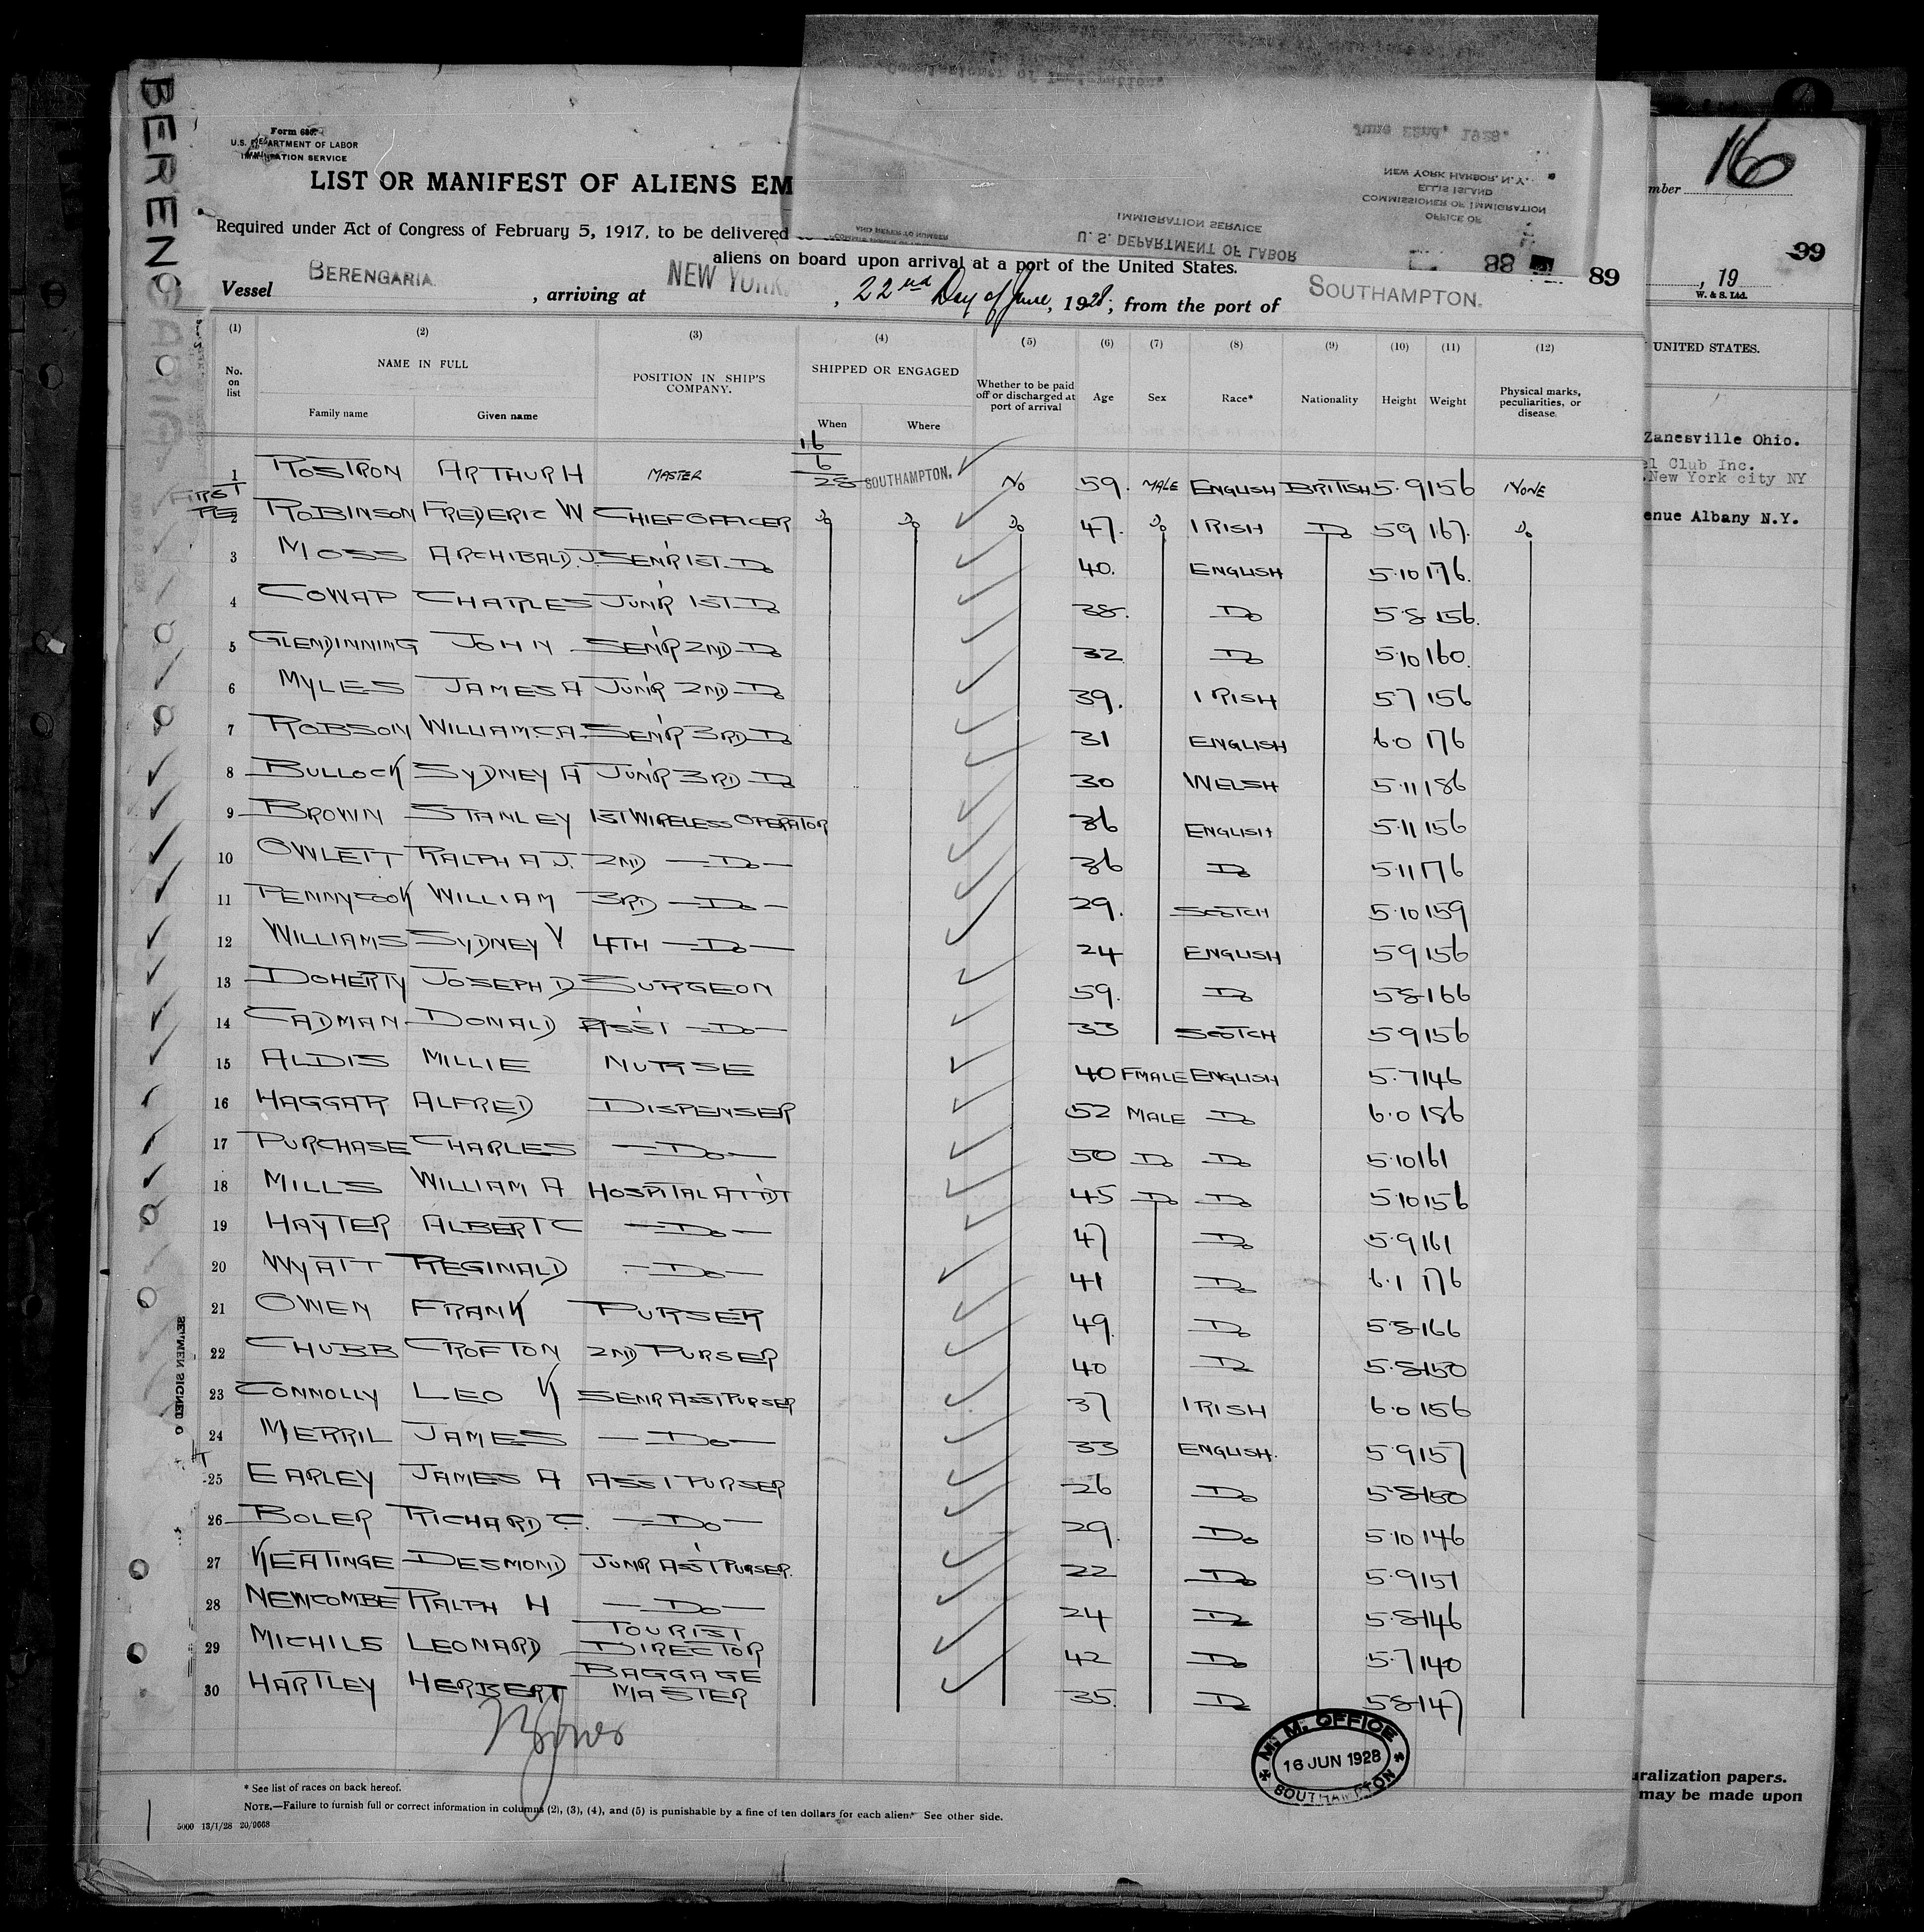 BERENGARIA
Form 680.
U.S. DEPARTMENT OF LABOR
IMMIGRATION SERVICE
LIST OR MANIFEST OF ALIENS EM
Required under Act of Congress of February 5, 1917, to be delivered
aliens on board upon arrival at a port of the United States.
June 22nd, 1928.
NEW YORK HARBOR, N.Y.
ELLIS ISLAND
COMMISSIONER OF IMMIGRATION
OFFICE OF
IMMIGRATION SERVICE
U. S. DEPARTMENT OF LABOR
AND REFER TO NUMBER
88
89
Vessel BERENGARIA, arriving at NEW YORK, 22nd Day of June, 1928; from the port of SOUTHAMPTON.
(1) (2) (3) (4) (5) (6) (7) (8) (9) (10) (11) (12)
No. on list NAME IN FULL POSITION IN SHIP'S COMPANY. SHIPPED OR ENGAGED Whether to be paid off or discharged at port of arrival Age Sex Race* Nationality Height Weight Physical marks, peculiarities, or disease.
Family name Given name When Where
1 ROSTRON ARTHUR H MASTER 16/6/28 SOUTHAMPTON. No 59. MALE ENGLISH BRITISH 5.9 156 NONE
FIRST
2 ROBINSON FREDERIC W CHIEF OFFICER Do Do Do 47. Do IRISH Do 5 9 167. Do
3 MOSS ARCHIBALD.J. SEN'R 1ST Do 40. ENGLISH 5.10 176.
4 COWAP CHARLES JUN'R 1ST Do 38. Do 5.8 156.
5 GLENDINNING JOHN SEN'R 2ND Do 32 Do 5.10 160.
6 MYLES JAMES A JUN'R 2ND Do 39. IRISH 5.7 156
7 ROBSON WILLIAM.C.A. SEN'R 3RD Do 31 ENGLISH 6.0 176
8 BULLOCK SYDNEY A JUN'R 3RD Do 30 WELSH 5.11 186
9 BROWN STANLEY 1ST WIRELESS OPERATOR 36 ENGLISH 5.11 156
10 OWLETT RALPH A J. 2ND — Do — 36 Do 5.11 176
11 PENNYCOOK WILLIAM 3RD — Do — 29. SCOTCH 5.10 159
12 WILLIAMS SYDNEY V 4TH — Do — 24 ENGLISH 5 9 156
13 DOHERTY JOSEPH D SURGEON 59. Do 5.8 166
14 CADMAN DONALD ASS'T — Do — 33 SCOTCH 5.9 156
15 ALDIS MILLIE NURSE 40 FMALE ENGLISH 5.7 146
16 HAGGAR ALFRED DISPENSER 52 MALE Do 6.0 186
17 PURCHASE CHARLES — Do — 50 Do Do 5.10 161
18 MILLS WILLIAM A HOSPITAL ATT'DT 45 Do Do 5.10 156
19 HAYTER ALBERT C — Do — 47 Do 5.9 161
20 WYATT REGINALD — Do — 41 Do 6.1 176
21 OWEN FRANK PURSER 49. Do 5.8 166
22 CHUBB CROFTON 2ND PURSER 40 Do 5.8 150
23 CONNOLLY LEO K SENR ASST PURSER 37 IRISH 6.0 156
24 MERRIL JAMES — Do — 33 ENGLISH. 5.9 157
25 EARLEY JAMES A ASST PURSER 26 Do 5.8 150
26 BOLER RICHARD C. — Do — 29. Do 5.10 146
27 KEATINGE DESMOND JUNR ASS'T PURSER. 22 Do 5.9 151
28 NEWCOMBE RALPH H — Do — 24 Do 5.8 146
29 MICHILS LEONARD TOURIST DIRECTOR 42 Do 5.7 140
30 HARTLEY HERBERT BAGGAGE MASTER 35. Do 5.8 147
M. M. OFFICE
16 JUN 1928
SOUTHAMPTON
* See list of races on back hereof.
NOTE.—Failure to furnish full or correct information in columns (2), (3), (4), and (5) is punishable by a fine of ten dollars for each alien. See other side.
5000 13/1/28 20/9668
SEAMEN SIGNED
16
mber
99
, 19
W. & S. Ltd.
UNITED STATES.
Zanesville Ohio.
el Club Inc.
New York city NY
enue Albany N.Y.
uralization papers.
may be made upon